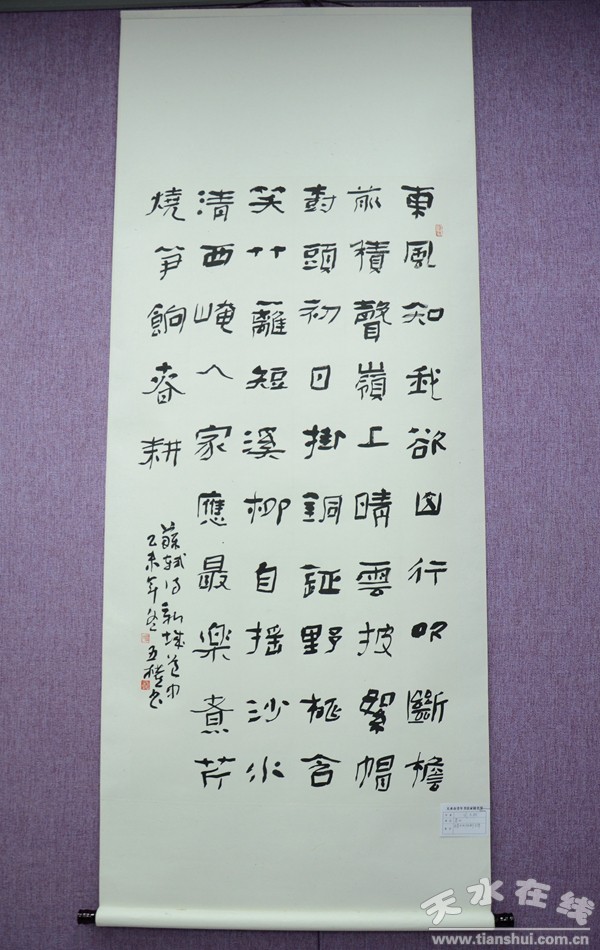 東風知我欲山行吹斷檐
前積聲嶺上晴雲披絮帽
樹頭初日掛銅鉦野桃含
笑竹籬短溪柳自搖沙水
清西崦人家應最樂煮芹
燒笋餉春耕
蘇軾詩新城道中
乙未年冬
天水在线
www.tianshui.com.cn